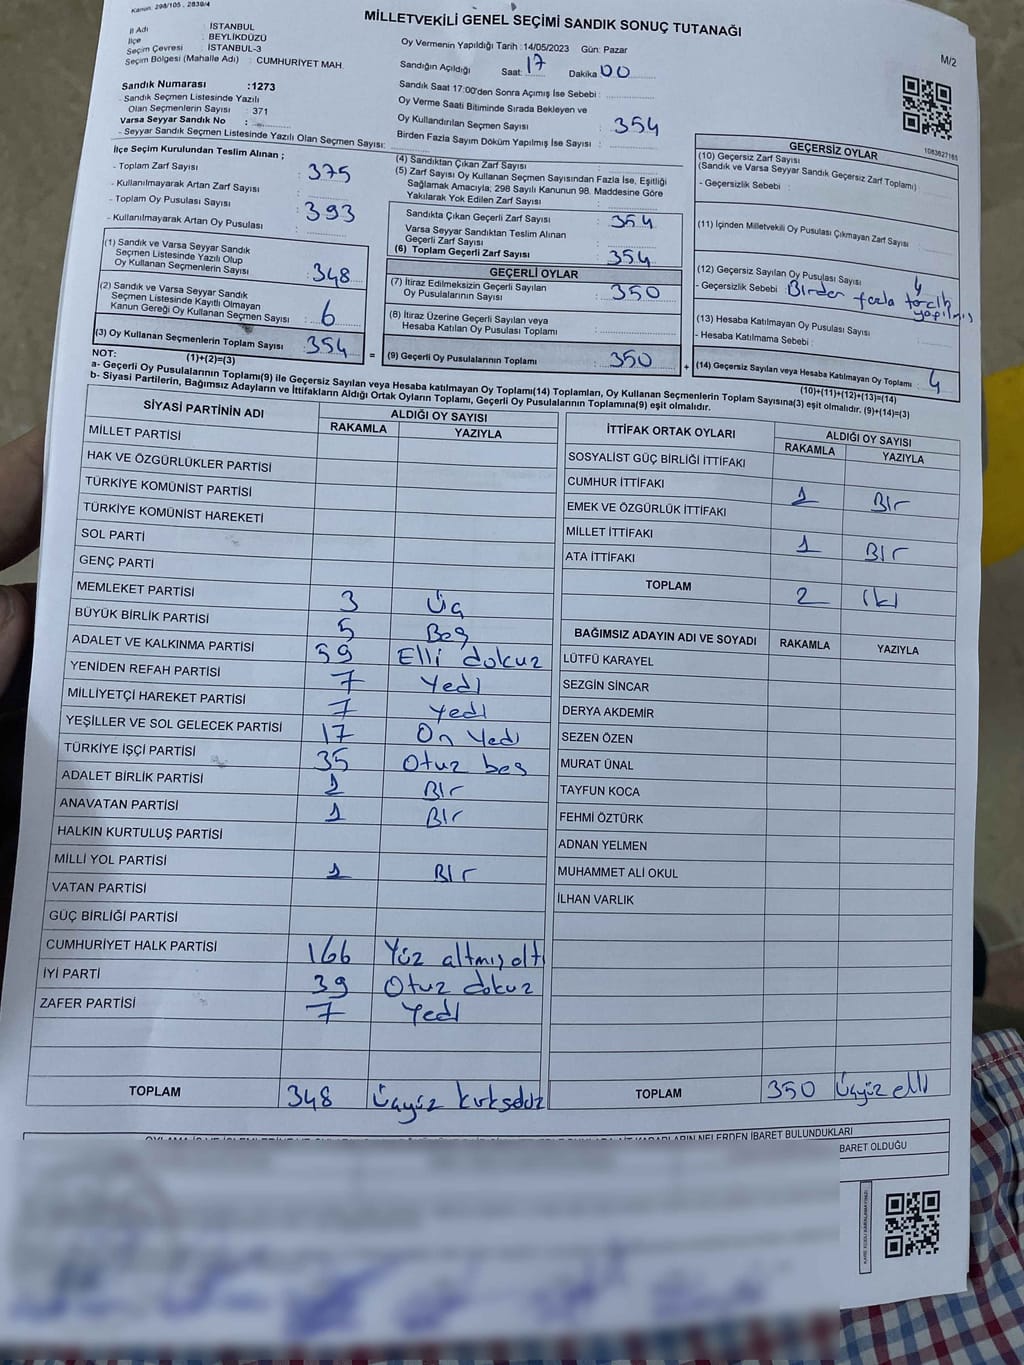 Kanun: 298/105 , 2839/4
MİLLETVEKİLİ GENEL SEÇİMİ SANDIK SONUÇ TUTANAĞI
M/2
İl Adı : İSTANBUL
İlçe : BEYLİKDÜZÜ
Seçim Çevresi : İSTANBUL-3
Seçim Bölgesi (Mahalle Adı) : CUMHURİYET MAH.
Sandık Numarası :1273
- Sandık Seçmen Listesinde Yazılı
Olan Seçmenlerin Sayısı : 371
Varsa Seyyar Sandık No :
- Seyyar Sandık Seçmen Listesinde Yazılı Olan Seçmen Sayısı:
Oy Vermenin Yapıldığı Tarih :14/05/2023 Gün: Pazar
Sandığın Açıldığı Saat: 17 Dakika 00
Sandık Saat 17:00'den Sonra Açımış İse Sebebi :
Oy Verme Saati Bitiminde Sırada Bekleyen ve
Oy Kullandırılan Seçmen Sayısı : 354
Birden Fazla Sayım Döküm Yapılmış İse Sayısı :
1083627165
İlçe Seçim Kurulundan Teslim Alınan ;
- Toplam Zarf Sayısı : 375
- Kullanılmayarak Artan Zarf Sayısı :
- Toplam Oy Pusulası Sayısı : 393
- Kullanılmayarak Artan Oy Pusulası
(1) Sandık ve Varsa Seyyar Sandık
Seçmen Listesinde Yazılı Olup
Oy Kullanan Seçmenlerin Sayısı : 348
(2) Sandık ve Varsa Seyyar Sandık
Seçmen Listesinde Kayıtlı Olmayan
Kanun Gereği Oy Kullanan Seçmen Sayısı : 6
(3) Oy Kullanan Seçmenlerin Toplam Sayısı : 354
(1)+(2)=(3)
(4) Sandıktan Çıkan Zarf Sayısı :
(5) Zarf Sayısı Oy Kullanan Seçmen Sayısından Fazla İse, Eşitliği
Sağlamak Amacıyla; 298 Sayılı Kanunun 98. Maddesine Göre
Yakılarak Yok Edilen Zarf Sayısı :
Sandıkta Çıkan Geçerli Zarf Sayısı : 354
Varsa Seyyar Sandıktan Teslim Alınan
Geçerli Zarf Sayısı :
(6) Toplam Geçerli Zarf Sayısı : 354
GEÇERLİ OYLAR
(7) İtiraz Edilmeksizin Geçerli Sayılan
Oy Pusulalarının Sayısı : 350
(8) İtiraz Üzerine Geçerli Sayılan veya
Hesaba Katılan Oy Pusulası Toplamı :
= (9) Geçerli Oy Pusulalarının Toplamı : 350 +
GEÇERSİZ OYLAR
(10) Geçersiz Zarf Sayısı
(Sandık ve Varsa Seyyar Sandık Geçersiz Zarf Toplamı) :
- Geçersizlik Sebebi :
(11) İçinden Milletvekili Oy Pusulası Çıkmayan Zarf Sayısı :
(12) Geçersiz Sayılan Oy Pusulası Sayısı : 4
- Geçersizlik Sebebi : Birden fazla tercih yapılmış
(13) Hesaba Katılmayan Oy Pusulası Sayısı :
- Hesaba Katılmama Sebebi :
(14) Geçersiz Sayılan veya Hesaba Katılmayan Oy Toplamı : 4
(10)+(11)+(12)+(13)=(14)
NOT:
a- Geçerli Oy Pusulalarının Toplamı(9) ile Geçersiz Sayılan veya Hesaba katılmayan Oy Toplamı(14) Toplamları, Oy Kullanan Seçmenlerin Toplam Sayısına(3) eşit olmalıdır. (9)+(14)=(3)
b- Siyasi Partilerin, Bağımsız Adayların ve İttifakların Aldığı Ortak Oyların Toplamı, Geçerli Oy Pusulalarının Toplamına(9) eşit olmalıdır.
SİYASİ PARTİNİN ADI ALDIĞI OY SAYISI
RAKAMLA YAZIYLA
MİLLET PARTİSİ
HAK VE ÖZGÜRLÜKLER PARTİSİ
TÜRKİYE KOMÜNİST PARTİSİ
TÜRKİYE KOMÜNİST HAREKETİ
SOL PARTİ
GENÇ PARTİ
MEMLEKET PARTİSİ 3 Üç
BÜYÜK BİRLİK PARTİSİ 5 Beş
ADALET VE KALKINMA PARTİSİ 59 Elli dokuz
YENİDEN REFAH PARTİSİ 7 Yedi
MİLLİYETÇİ HAREKET PARTİSİ 7 yedi
YEŞİLLER VE SOL GELECEK PARTİSİ 17 On Yedi
TÜRKİYE İŞÇİ PARTİSİ 35 Otuz beş
ADALET BİRLİK PARTİSİ 1 Bir
ANAVATAN PARTİSİ 1 Bir
HALKIN KURTULUŞ PARTİSİ
MİLLİ YOL PARTİSİ 1 Bir
VATAN PARTİSİ
GÜÇ BİRLİĞİ PARTİSİ
CUMHURİYET HALK PARTİSİ 166 Yüz altmış altı
İYİ PARTİ 39 Otuz dokuz
ZAFER PARTİSİ 7 Yedi
TOPLAM 348 Üçyüz kırksekiz
İTTİFAK ORTAK OYLARI ALDIĞI OY SAYISI
RAKAMLA YAZIYLA
SOSYALİST GÜÇ BİRLİĞİ İTTİFAKI
CUMHUR İTTİFAKI 1 Bir
EMEK VE ÖZGÜRLÜK İTTİFAKI
MİLLET İTTİFAKI 1 Bir
ATA İTTİFAKI
TOPLAM 2 İki
BAĞIMSIZ ADAYIN ADI VE SOYADI RAKAMLA YAZIYLA
LÜTFÜ KARAYEL
SEZGİN SİNCAR
DERYA AKDEMİR
SEZEN ÖZEN
MURAT ÜNAL
TAYFUN KOCA
FEHMİ ÖZTÜRK
ADNAN YELMEN
MUHAMMET ALİ OKUL
İLHAN VARLIK
TOPLAM 350 Üçyüz elli
KARARLARIN NELERDEN İBARET BULUNDUKLARI
BARET OLDUĞU